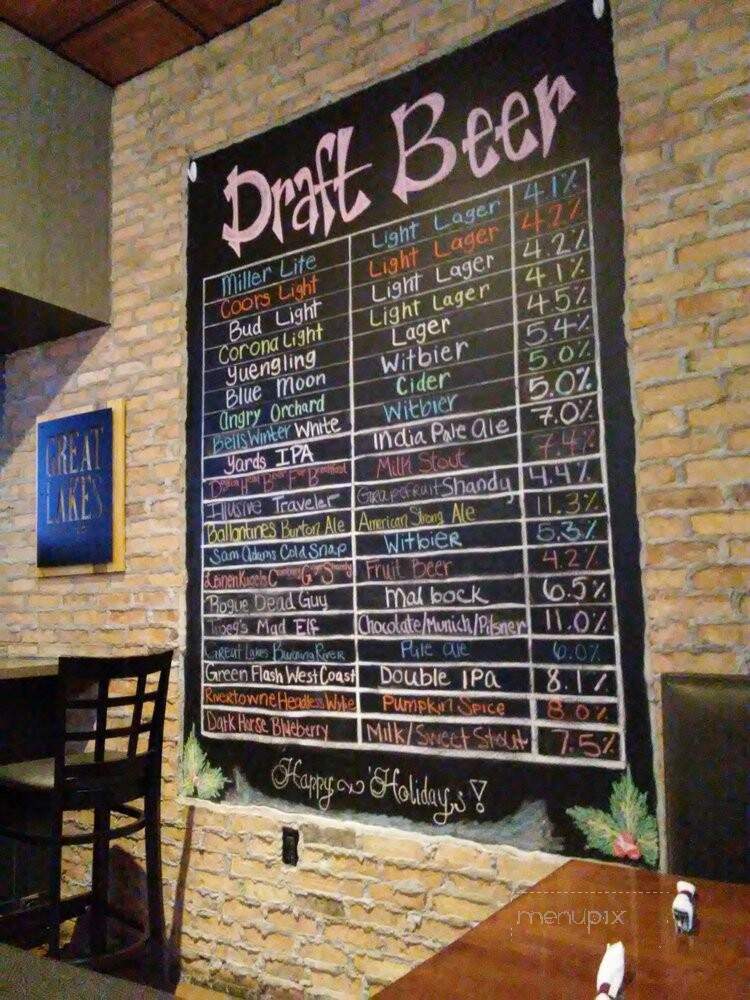 Draft Beer
Miller Lite Light Lager 4.1%
Coors Light Light Lager 4.2%
Bud Light Light Lager 4.2%
Corona Light Light Lager 4.1%
Yuengling Lager 4.5%
Blue Moon Witbier 5.4%
Angry Orchard Cider 5.0%
Bells Winter White Witbier 5.0%
Yards IPA India Pale Ale 7.0%
Beer For Breakfast Milk Stout 7.4%
Illusive Traveler Grapefruit Shandy 4.4%
Ballantines Burton Ale American Strong Ale 11.3%
Sam Adams Cold Snap Witbier 5.3%
Leinenkugels Cranberry Ginger Shandy Fruit Beer 4.2%
Rogue Dead Guy Maibock 6.5%
Troegs Mad Elf Chocolate/Munich/Pilsner 11.0%
Great Lakes Burning River Pale Ale 6.0%
Green Flash West Coast Double IPA 8.1%
Rivertowne Headless Wylie Pumpkin Spice 8.0%
Dark Horse Blueberry Milk/Sweet Stout 7.5%
Happy Holidays!
GREAT
LAKES
menupix